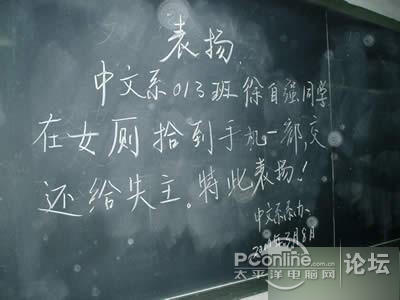 表扬
中文系013班徐自强同学
在女厕拾到手机一部,交
还给失主。特此表扬!
中文系系办
月8日
PConline.com.cn
太平洋电脑网
论坛